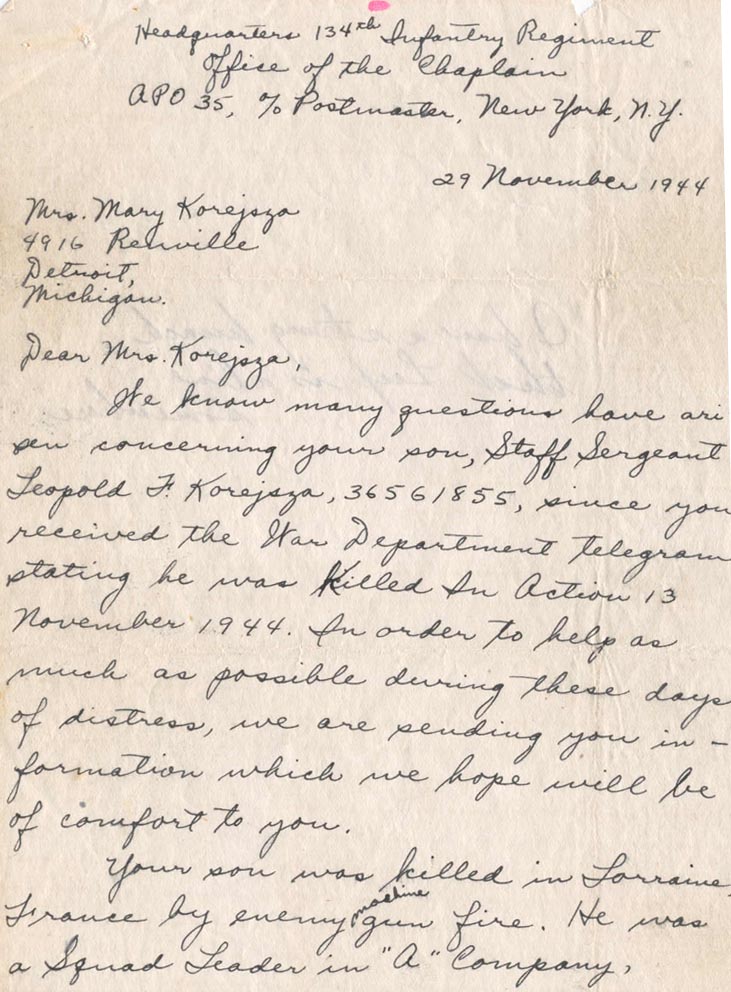 Headquarters 134th Infantry Regiment
Office of the Chaplain
APO 35, % Postmaster, New York, N.Y.
29 November 1944
Mrs. Mary Korejsza
4916 Renville
Detroit,
Michigan.
Dear Mrs. Korejsza,
We know many questions have ari
sen concerning your son, Staff Sergeant
Leopold F. Korejsza, 36561855, since you
received the War Department telegram
stating he was Killed In Action 13
November 1944. In order to help as
much as possible during these days
of distress, we are sending you in-
formation which we hope will be
of comfort to you.
Your son was killed in Lorraine,
France by enemy machine gun fire. He was
a Squad Leader in "A" Company,